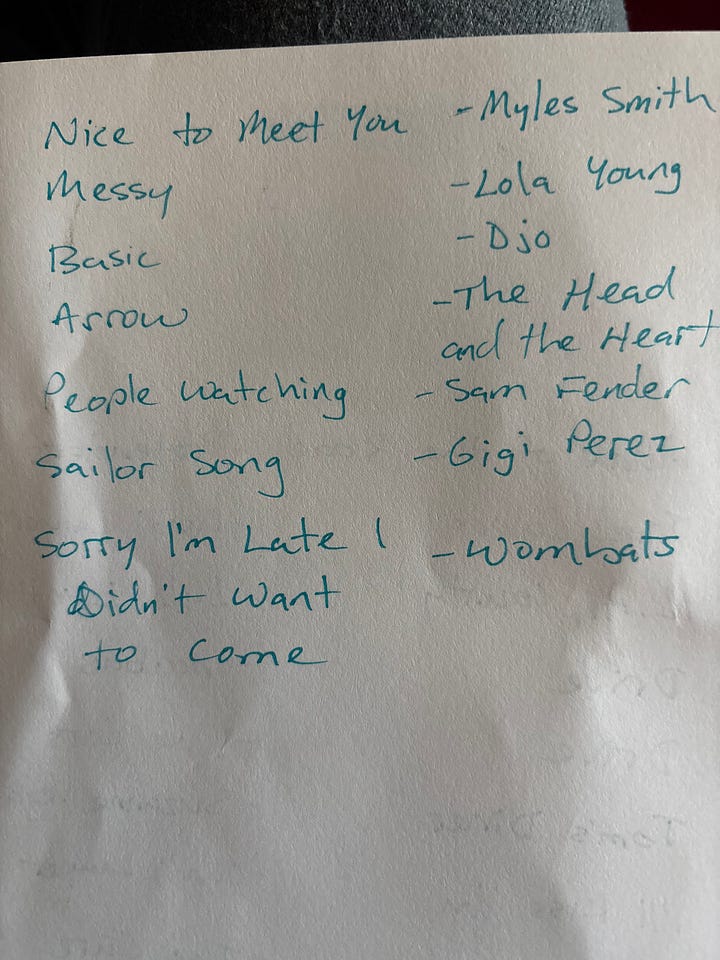 Nice to Meet You - Myles Smith
Messy - Lola Young
Basic - Djo
Arrow - The Head
and the Heart
People Watching - Sam Fender
Sailor Song - Gigi Perez
Sorry I'm Late I - Wombats
Didn't Want
to Come